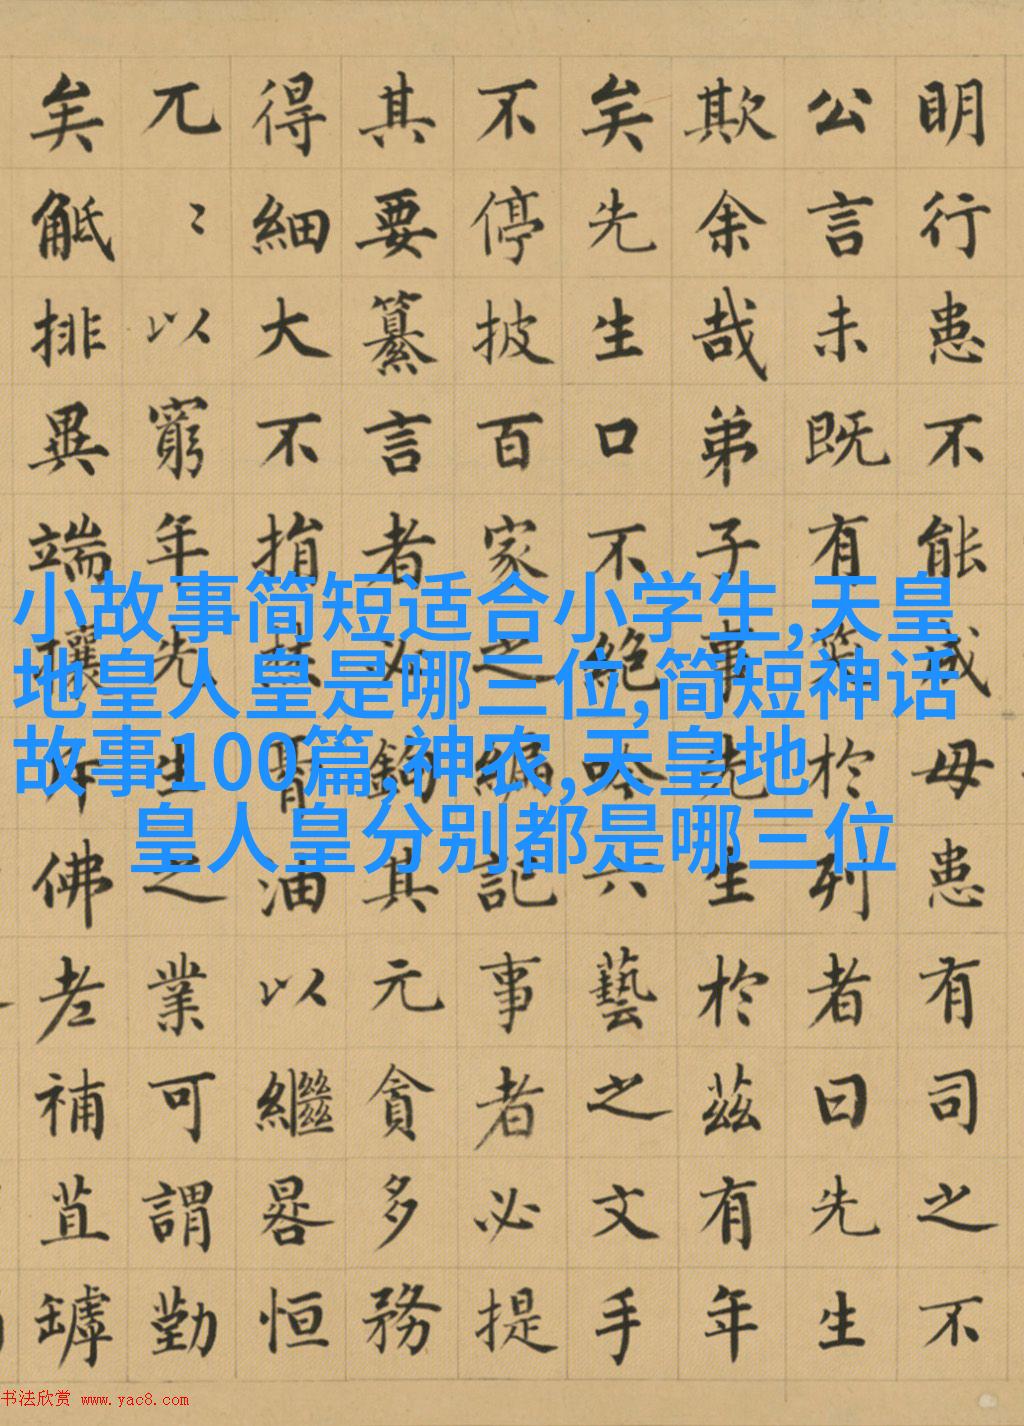 明行患不能成毋患有司之不
公言未既有笑於列者曰先生
欺余哉弟子事先生於茲有年
矣先生口不絕吟六藝之文手
不停披百家之編記事者必提
其要纂言者必鉤其元貪多務
得細大不捐焚膏油以繼晷恒
兀〻以窮年先生之業可謂勤
矣觝排異端攘斥佛老補苴罅
小故事简短适合小学生,天皇
地皇人皇是哪三位,简短神话
故事100篇,神农,天皇地
皇人皇分别都是哪三位
书法欣赏 www.yac8.com